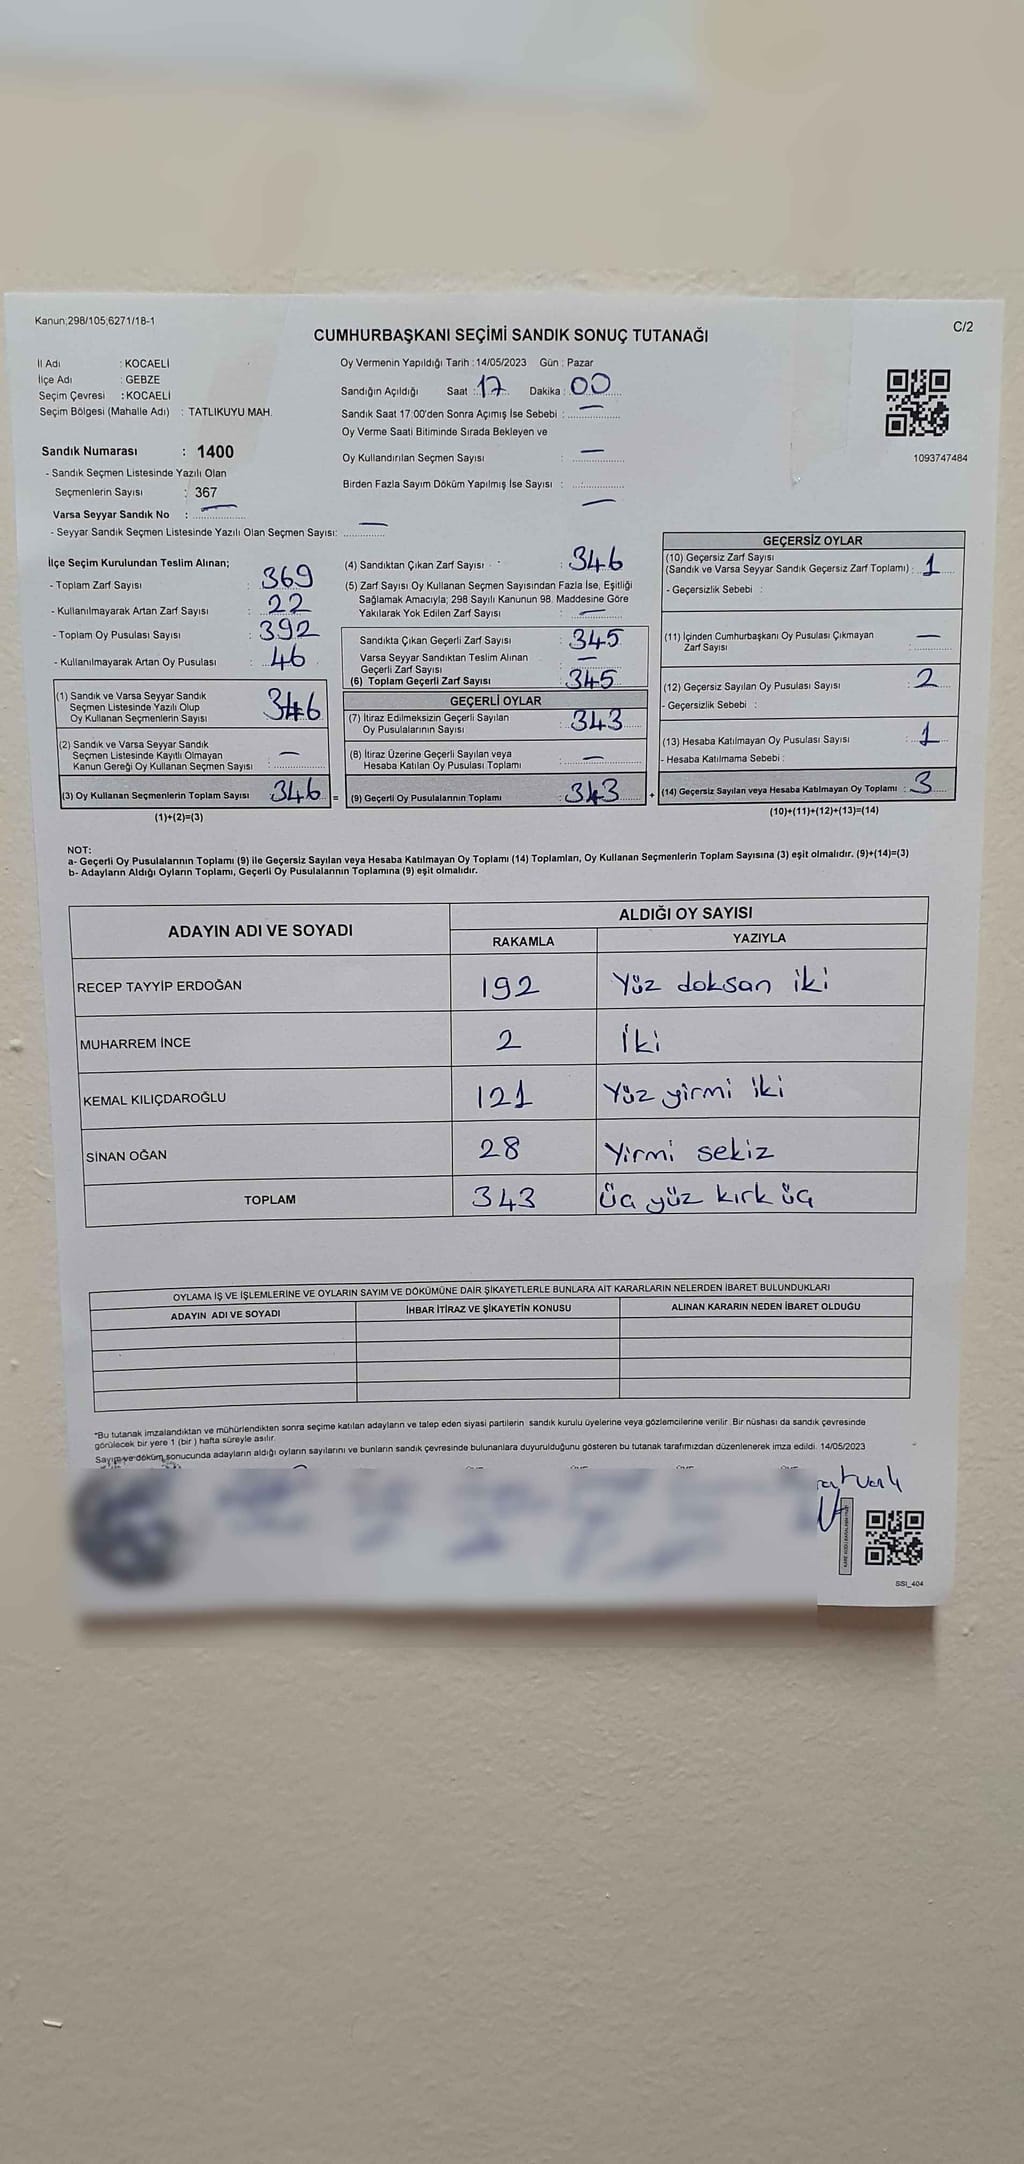 Kanun;298/105;6271/18-1
C/2
CUMHURBAŞKANI SEÇİMİ SANDIK SONUÇ TUTANAĞI
İl Adı : KOCAELİ
İlçe Adı : GEBZE
Seçim Çevresi : KOCAELİ
Seçim Bölgesi (Mahalle Adı) : TATLIKUYU MAH.
Sandık Numarası : 1400
- Sandık Seçmen Listesinde Yazılı Olan
Seçmenlerin Sayısı : 367
Varsa Seyyar Sandık No : —
- Seyyar Sandık Seçmen Listesinde Yazılı Olan Seçmen Sayısı: —
Oy Vermenin Yapıldığı Tarih : 14/05/2023 Gün : Pazar
Sandığın Açıldığı Saat : 17 Dakika : 00
Sandık Saat 17.00'den Sonra Açımış İse Sebebi : —
Oy Verme Saati Bitiminde Sırada Bekleyen ve
Oy Kullandırılan Seçmen Sayısı : —
Birden Fazla Sayım Döküm Yapılmış İse Sayısı : —
1093747484
İlçe Seçim Kurulundan Teslim Alınan;
- Toplam Zarf Sayısı : 369
- Kullanılmayarak Artan Zarf Sayısı : 22
- Toplam Oy Pusulası Sayısı : 392
- Kullanılmayarak Artan Oy Pusulası : 46
(1) Sandık ve Varsa Seyyar Sandık
Seçmen Listesinde Yazılı Olup
Oy Kullanan Seçmenlerin Sayısı 346
(2) Sandık ve Varsa Seyyar Sandık
Seçmen Listesinde Kayıtlı Olmayan
Kanun Gereği Oy Kullanan Seçmen Sayısı : —
(3) Oy Kullanan Seçmenlerin Toplam Sayısı 346
(1)+(2)=(3)
=
(4) Sandıktan Çıkan Zarf Sayısı : 346
(5) Zarf Sayısı Oy Kullanan Seçmen Sayısından Fazla İse, Eşitliği
Sağlamak Amacıyla; 298 Sayılı Kanunun 98. Maddesine Göre
Yakılarak Yok Edilen Zarf Sayısı : —
Sandıkta Çıkan Geçerli Zarf Sayısı : 345
Varsa Seyyar Sandıktan Teslim Alınan
Geçerli Zarf Sayısı —
(6) Toplam Geçerli Zarf Sayısı : 345
GEÇERLİ OYLAR
(7) İtiraz Edilmeksizin Geçerli Sayılan
Oy Pusulalarının Sayısı : 343
(8) İtiraz Üzerine Geçerli Sayılan veya
Hesaba Katılan Oy Pusulası Toplamı : —
(9) Geçerli Oy Pusulalarının Toplamı : 343
+
GEÇERSİZ OYLAR
(10) Geçersiz Zarf Sayısı
(Sandık ve Varsa Seyyar Sandık Geçersiz Zarf Toplamı) : 1
- Geçersizlik Sebebi :
(11) İçinden Cumhurbaşkanı Oy Pusulası Çıkmayan
Zarf Sayısı : —
(12) Geçersiz Sayılan Oy Pusulası Sayısı : 2
- Geçersizlik Sebebi :
(13) Hesaba Katılmayan Oy Pusulası Sayısı : 1
- Hesaba Katılmama Sebebi :
(14) Geçersiz Sayılan veya Hesaba Katılmayan Oy Toplamı : 3
(10)+(11)+(12)+(13)=(14)
NOT:
a- Geçerli Oy Pusulalarının Toplamı (9) ile Geçersiz Sayılan veya Hesaba Katılmayan Oy Toplamı (14) Toplamları, Oy Kullanan Seçmenlerin Toplam Sayısına (3) eşit olmalıdır. (9)+(14)=(3)
b- Adayların Aldığı Oyların Toplamı, Geçerli Oy Pusulalarının Toplamına (9) eşit olmalıdır.
ADAYIN ADI VE SOYADI
ALDIĞI OY SAYISI
RAKAMLA YAZIYLA
RECEP TAYYİP ERDOĞAN 192 Yüz doksan iki
MUHARREM İNCE 2 İki
KEMAL KILIÇDAROĞLU 121 Yüz yirmi iki
SİNAN OĞAN 28 Yirmi sekiz
TOPLAM 343 Üç yüz kırk üç
OYLAMA İŞ VE İŞLEMLERİNE VE OYLARIN SAYIM VE DÖKÜMÜNE DAİR ŞİKAYETLERLE BUNLARA AİT KARARLARIN NELERDEN İBARET BULUNDUKLARI
ADAYIN ADI VE SOYADI İHBAR İTİRAZ VE ŞİKAYETİN KONUSU ALINAN KARARIN NEDEN İBARET OLDUĞU
*Bu tutanak imzalandıktan ve mühürlendikten sonra seçime katılan adayların ve talep eden siyasi partilerin sandık kurulu üyelerine veya gözlemcilerine verilir. Bir nüshası da sandık çevresinde
görülecek bir yere 1 (bir) hafta süreyle asılır.
Sayım ve döküm sonucunda adayların aldığı oyların sayılarını ve bunların sandık çevresinde bulunanlara duyurulduğunu gösteren bu tutanak tarafımızdan düzenlenerek imza edildi. 14/05/2023
SSI_404